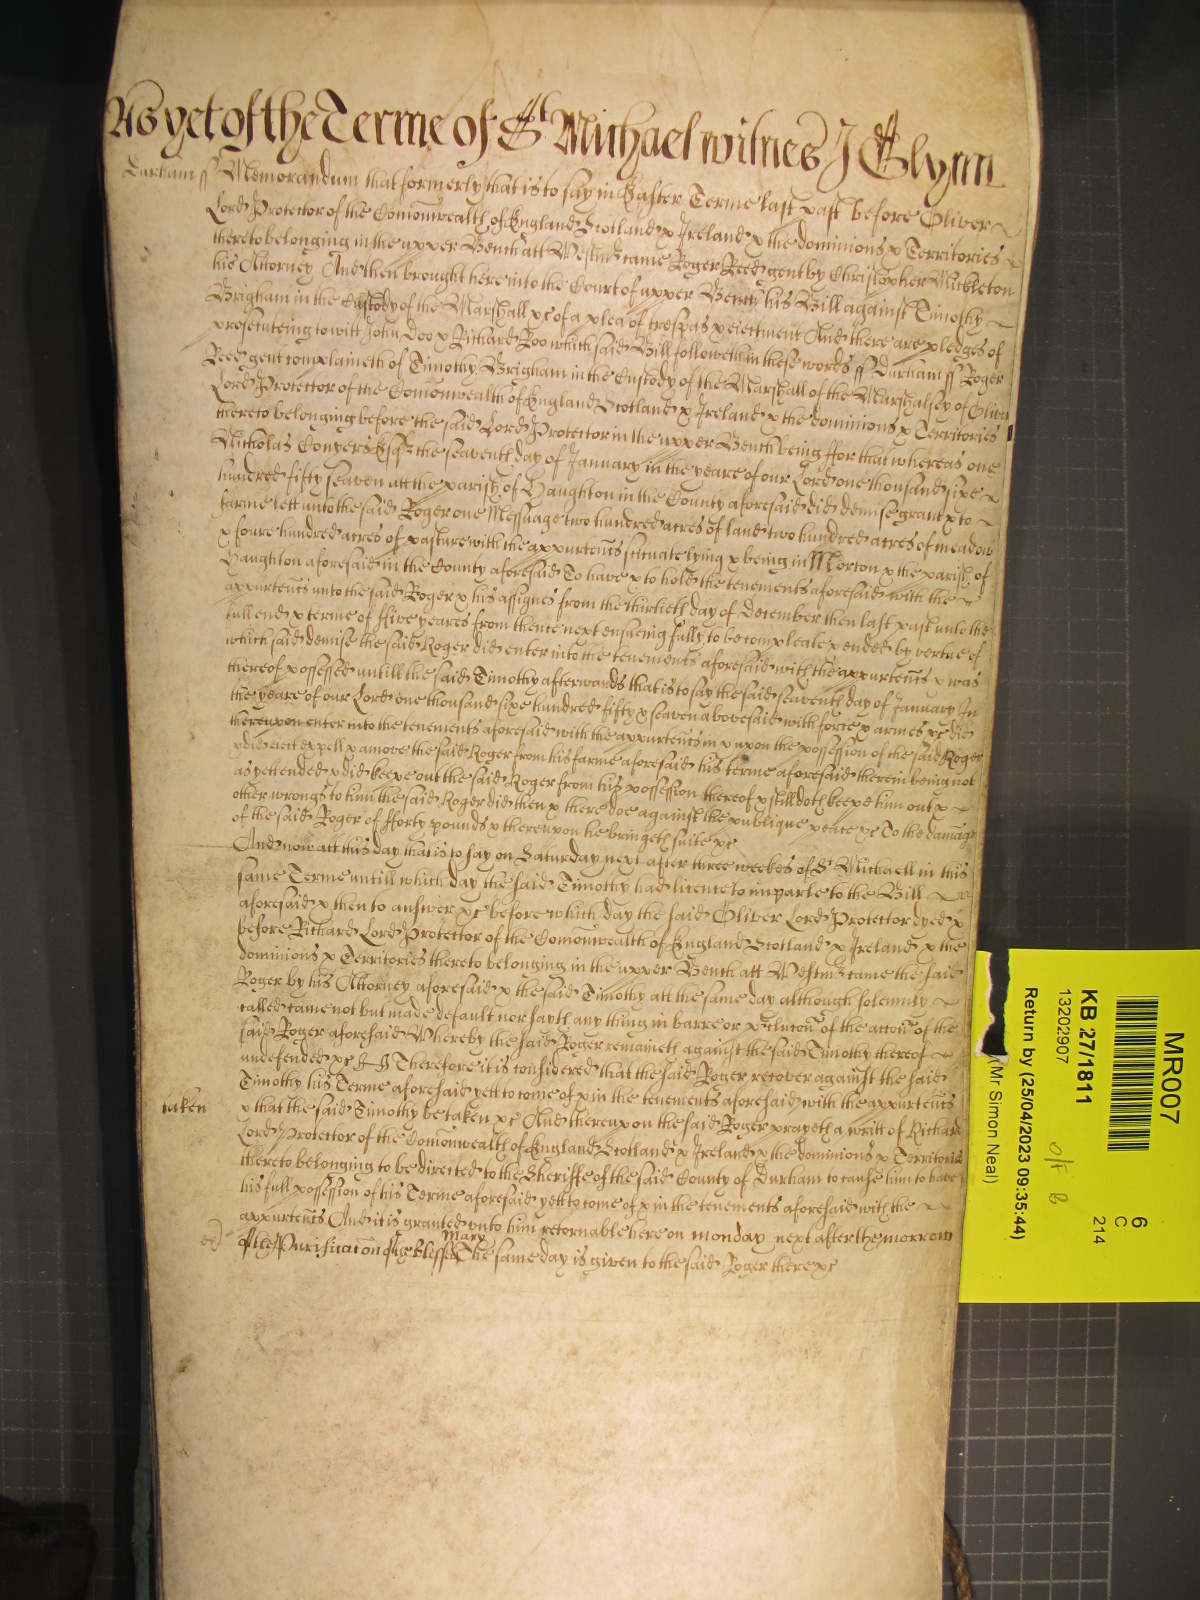 As yet of the Terme of St Michael witnes J Glynn
Durham ss Memorandum that formerly that is to say in Easter Terme last past before Oliver
Lord Protector of the Comonwealth of England Scotland & Ireland & the dominions & Territories
thereto belonging in the upper Bench att Westmr came Roger Reed gent by Christopher Mickleton
his Attorney And then brought here into the Court of upper Bench his Bill against Timothy
Brigham in the Custody of the Marshall &c of a plea of trespas & eiectment And there are pledges of
prosecuteing to witt John Doo & Richard Roo which said Bill followeth in these words ss Durham ss Roger
Reed gent complaineth of Timothy Brigham in the Custody of the Marshall of the Marshalsey of Oliver
Lord Protector of the Comonwealth of England Scotland & Ireland & the dominions & Territories
thereto belonging before the said Lord Protector in the upper Bench being ffor that whereas one
Nicholas Conyers Esqr the seaventh day of January in the yeare of our Lord one thousand sixe
hundred fifty seaven att the parish of Haughton in the County aforesaid did demise grant & to
farme lett unto the said Roger one Messuage two hundred acres of land two hundred acres of meadow
& foure hundred acres of pasture with the appurtencs scituate lying & being in Morton & the parish of
Haughton aforesaid in the County aforesaid To have & to hold the tenements aforesaid with the
appurtencs unto the said Roger & his assignes from the thirtieth day of December then last past unto the
full end & terme of ffive yeares from thence next ensueing fully to be compleate & ended by vertue of
which said demise the said Roger did enter into the tenements aforesaid with the appurtencs & was
thereof possessed untill the said Timothy afterwards that is to say the said seaventh day of January In
the yeare of our Lord one thousand sixe hundred fifty & seaven abovesaid with force & armes &c did
thereupon enter into the tenements aforesaid with the appurtencs in & upon the possession of the said Roger
& did eiect expell & amove the said Roger from his farme aforesaid his terme aforesaid therein being not
as yet ended & did keepe out the said Roger from his possession thereof & still doth keepe him out &
other wrongs to him the said Roger did then & there doe against the publique peace &c To the damage
of the said Roger of fforty pounds & thereupon he bringeth suite &c
And now att this day that is to say on Saturday next after three weekes of St Michaell in this
same Terme untill which day the said Timothy had licence to imparle to the Bill
aforesaid & then to answer &c before which day the said Oliver Lord Protector dyed &
before Richard Lord Protector of the Comonwealth of England Scotland & Ireland & the
dominions & Territories thereto belonging in the upper Bench att Westmr came the said
Roger by his Attorney aforesaid & the said Timothy att the same day although solemnly
called came not but made default nor sayth any thing in barre or preclucon of the accon of the
said Roger aforesaid Whereby the said Roger remaineth against the said Timothy thereof
undefended &c Therefore it is considered that the said Roger recover against the said
Timothy his Terme aforesaid yett to come of & in the tenements aforesaid with the appurtencs
taken & that the said Timothy be taken &c And thereupon the said Roger prayeth a writt of Richard
Lord Protector of the Comonwealth of England Scotland & Ireland & the dominions & Territories
thereto belonging to be directed to the Sheriffe of the said County of Durham to cause him to have
his full possession of his Terme aforesaid yett to come of & in the tenements aforesaid with the
appurtencs And it is granted unto him retornable here on monday next after the morrow
of the Purificacion of the blessed Mary The same day is given to the said Roger there &c
MR007
6
C
214
KB 27/1811
13202907
Return by (25/04/2023 09:35:44)
(Mr Simon Neal)